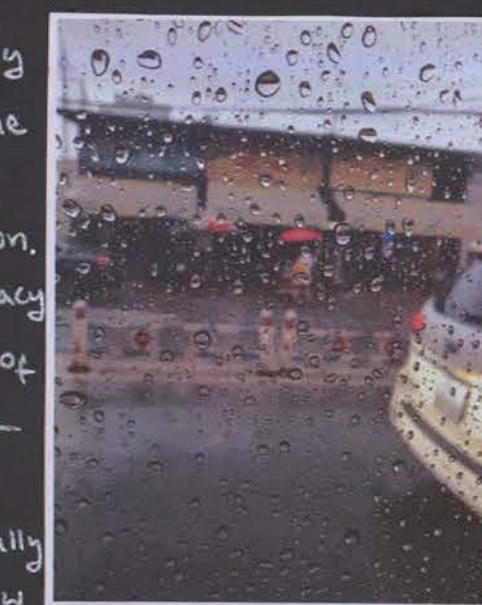 y
on.
acy
of
ally
w